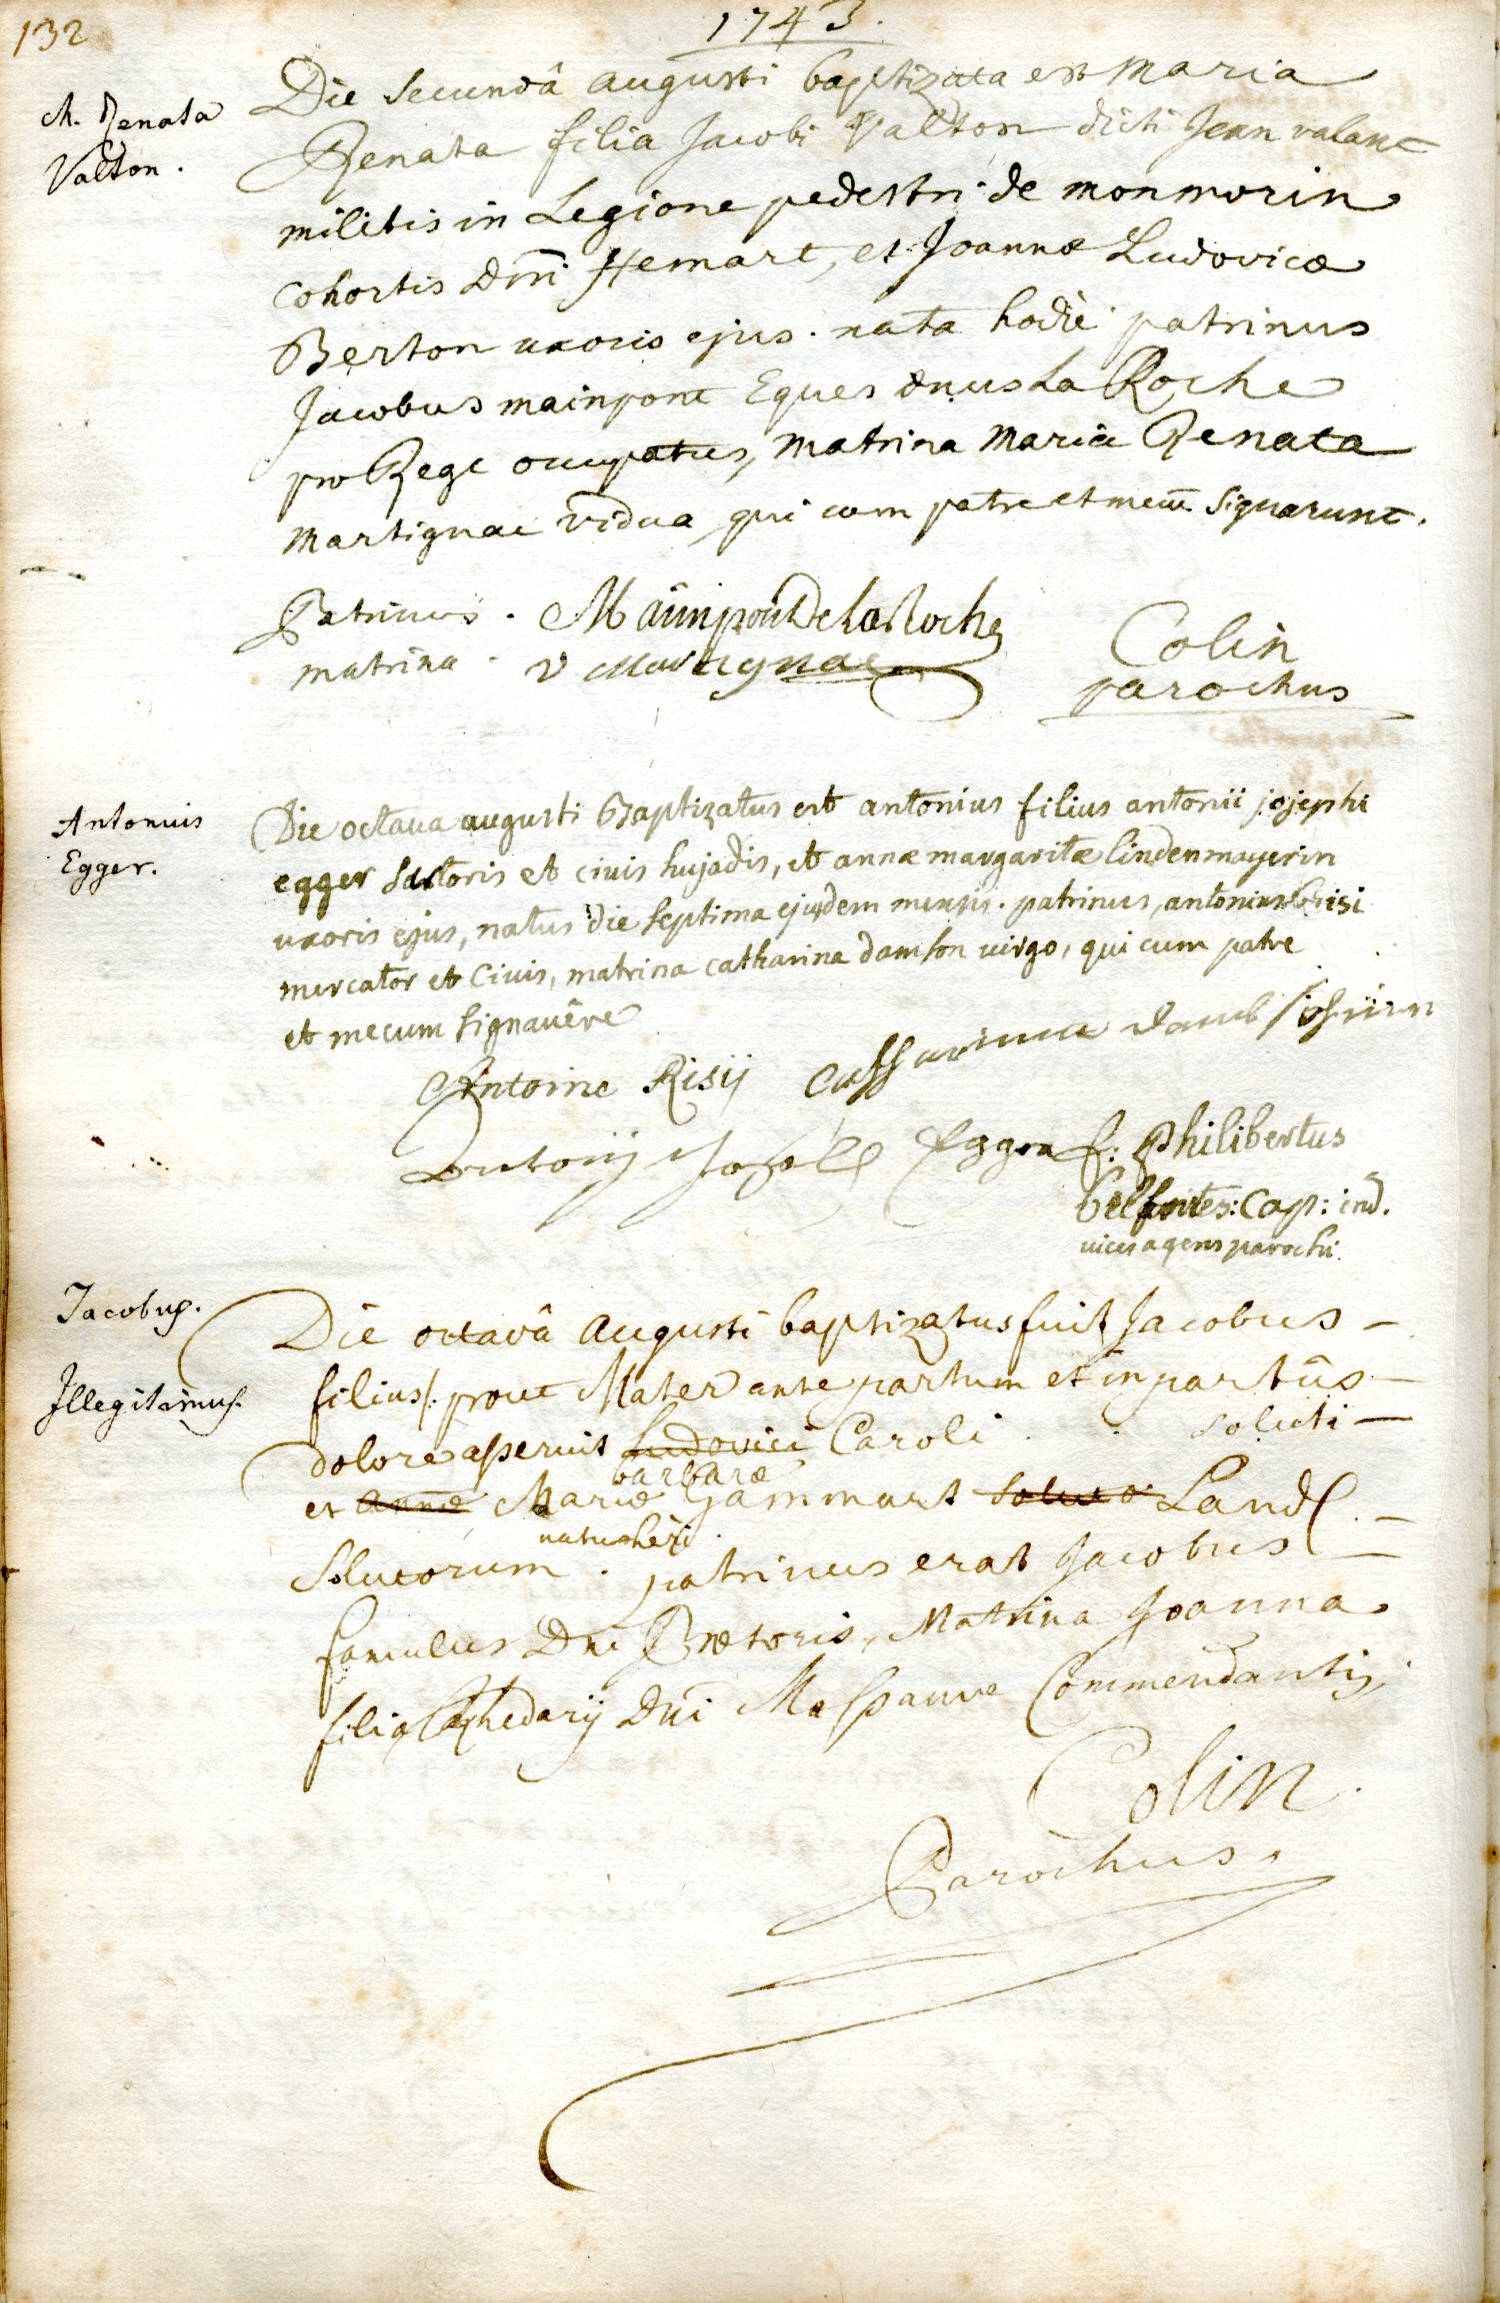 132
1743.
M. Renata
Valton.
Die secundâ augusti baptizata est Maria
Renata filia Jacobi Valton dicti Jean valant
militis in Legione pedestri de monmorin
cohortis Dni Hemart, et Joannæ Ludovicæ
Berton uxoris ejus. nata hodiè patrinus
Jacobus mainpont Eques dnus La Roche
pro Rege occupatus, matrina Maria Renata
martignac vidua, qui cum patre et mecum signarunt.
Patrinus. MainpontDelaRoche
matrina. v Martignac
Colin
parochus
Antonius
Egger.
Die octava augusti Baptizatus est antonius filius antonii josephi
egger sartoris et civis hujadis, et annæ margaritæ lindenmayerin
uxoris ejus, natus die septima ejusdem mensis. patrinus, antonius risi
mercator et civis, matrina catharina damson virgo, qui cum patre
et mecum signavêre
Antoine Risij Catharina
Antonij Joseph Egger f: Philibertus
belfortes: Cap: ind.
vices agens parochi
Jacobus.
Illegitimus.
Die octavâ Augusti baptizatus fuit Jacobus –
filius /: prout Mater ante partum et in partûs –
dolore asseruit Ludovici Caroli . . soluti –
barbaræ
et annæ Mariæ Gammart soluta Landt . –
natus heri
Solutorum . patrinus erat Jacobus –
famulus Dni Prætoris, Matrina Joanna
filia Dni Commendantis,
Colin.
Parochus.